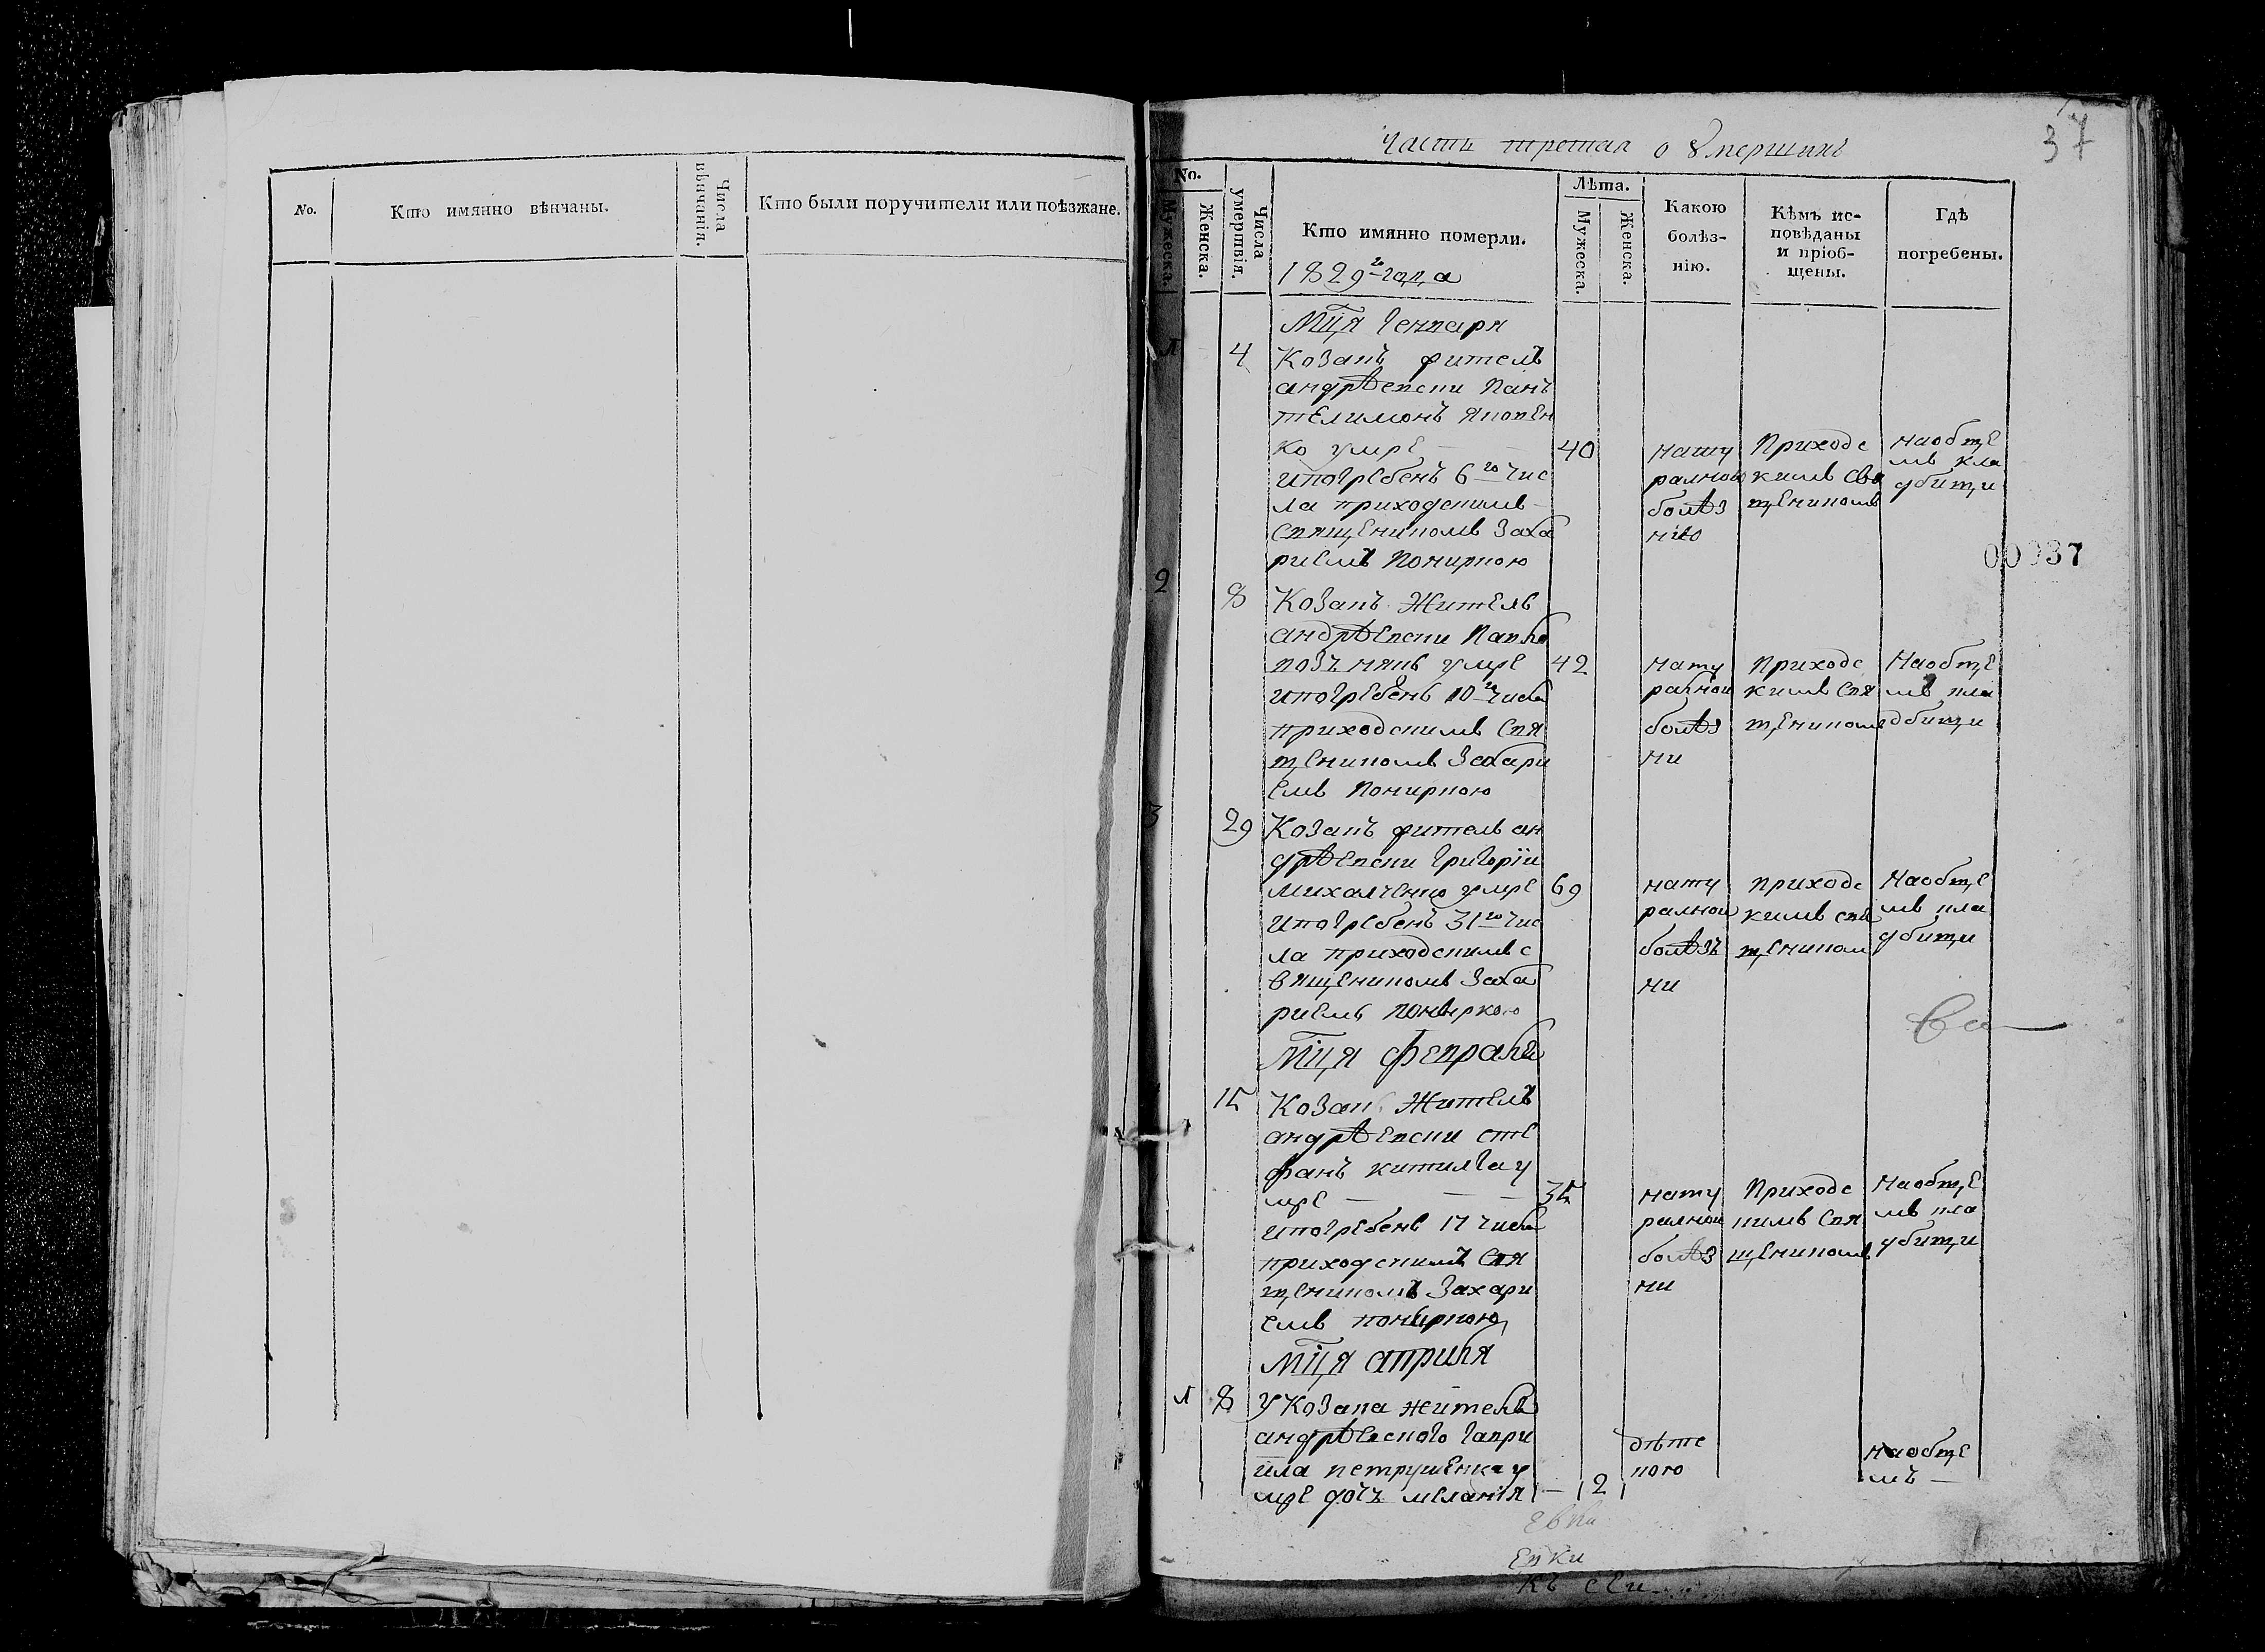 No.
Кто имянно вѣнчаны.
Числа вѣнчанія.
Кто были поручители или поѣзжане.
37
Часть третая о умершихъ
No.
Мужеска.
Женска.
Числа умертвія.
Кто имянно померли.
1829го года
Лѣта.
Мужеска.
Женска.
Какою
болѣз-
нію.
Кѣмъ ис-
повѣданы
и пріоб-
щены.
Гдѣ
погребены.
Мця Генваря
4 Козакъ жителъ
андрѣевски Панъ
телимонъ
ко умре 40
ипогребенъ 6го чис
ла приходскимъ
священикомъ Заха
риемъ Пониркою
нату
ралною
болѣз
нию
Приходс
кимъ Свя
щеникомъ
наобще
мъ кла
дбищи
00037
2 8 Козакъ Житель
андрѣевски Павло
умре 42
ипогребенъ 10го числа
приходскимъ Свя
щеникомъ Захари
емъ Пониркою
нату
ралнои
болѣз
ни
приходс
кимъ Свя
щеникомъ
Наобще
мъ кла
дбищи
3 29 Козакъ житель ан
дрѣевски Григорїи
Михалченко умре 69
ипогребенъ 31го чис
ла приходскимъ с
вященикомъ Заха
риемъ Понѣркою
нату
ралнои
болѣзъ
ни
приходс
кимъ свя
щеником
Наобще
мъ кла
дбищи
Мця февраля
15 Козакъ Жителъ
андрѣевски сте
фанъ у
мре 35
ипогребенъ 17 числа
приходскимъ Свя
щеникомъ Захари
емъ понѣркою
нату
ралнои
болѣз
ни
Приходс
кимъ Свя
щеникомъ
Наобще
мъ кла
дбищи
Мця априля
1 8 У Козака жителя
андрѣевского Гаври
ила петрушенка у
мре дочъ меланія — 2
дѣтс
кою
наобще
мъ —